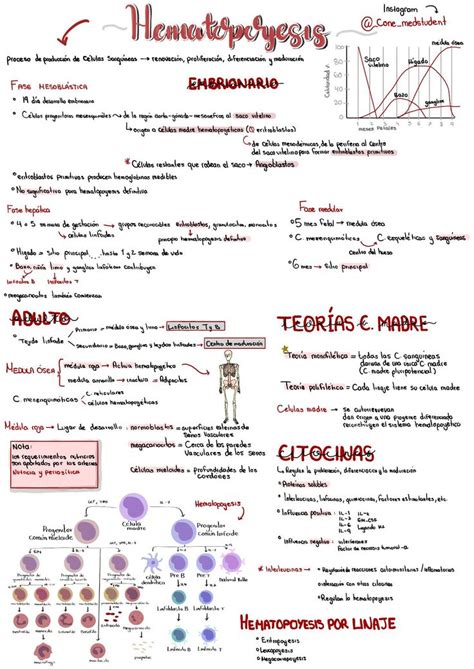 Hematopoyesis
Instagram
@_Cone_medstudent
Proceso de producción de Células Sanguíneas → renovación, proliferación, diferenciación y maduración
EMBRIONARIO
FASE MESOBLÁSTICA
° 19 día desarrollo embrionario
° Células progenitoras mesenquimales → de la región aorta-gónada-mesonefros al saco vitelino
→ origen a células madre hematopoyéticas
→ de células mesodérmicas, de la periferia al centro
del saco vitelino para formar eritroblastos primitivos
* Células restantes que rodean el saco → Angioblastos
° eritroblastos primitivos producen hemoglobinas medibles
° No significativa para hematopoyesis definitiva
Cantidad
100
80
60
40
20
0
saco
vitelino
hígado
médula ósea
Bazo
ganglios
1 2 3 4 5 6 7 8 9
meses fetales
Fase hepática
° 4 a 5 semana de gestación → grupos reconocibles eritroblastos, granulocitos, monocitos
células linfoides
principio hematopoyesis definitiva
° Hígado = sitio principal ... hasta 1 y 2 semana de vida
° Bazo, timo y ganglios linfáticos contribuyen
Linfocitos B Linfocitos T
° megacariocitos también comienzan
Fase medular
° 5 mes fetal → médula ósea
° C. mesenquimáticas → C. esqueléticas y Sanguíneas
Centro del hueso
° 6 mes → sitio principal
ADULTO
° Tejido linfoide
Primario = médula ósea y timo → Linfocitos T y B
secundario = Bazo, ganglios y tejidos linfoides → Centro de maduración
MEDULA ÓSEA
médula roja → Activa hematopoyética
médula amarilla → inactiva → Adipocitos
C. mesenquimáticas
C. reticulares
células hematopoyéticas
Médula roja → Lugar de desarrollo:
normoblastos = superficies externas de
Senos Vasculares
megacariocitos = Cerca de las paredes
Vasculares de los senos
Células mieloides = profundidades de los
Cordones
Nota:
los requerimientos nutricios
son aportados por las arterias
Nutricia y perióstica
TEORÍAS C. MADRE
° Teoría monofilética = todas las C. sanguíneas
deriva de una única C. madre
(C. madre pluripotencial)
Teoría polifilética = Cada linaje tiene su célula madre
Células madre → se autorrenuevan
dan origen a una progenie diferenciada
reconstituyen el sistema hematopoyético
CITOCINAS
La Regulan la proliferación, diferenciación y la maduración
° Proteínas solubles
° Interleucinas, linfocinas, quimiocinas, Factores estimulantes, etc.
° Influencia positiva: IL-1 IL-9
IL-3 GM-CSF
IL-6 Ligando Kit
° Influencia negativa: interferones
Factor de necrosis tumoral-α
* Interleucinas → ° Regulación de reacciones autoinmunitarias / inflamatorias
° colaboración con otras citocinas
° Regulan la hematopoyesis
Hematopoyesis
Célula
madre
Progenitor
común mieloide
Progenitor
común linfoide
Célula
dendrítica
Pre B
Pre T
Natural Killer
Linfoblasto B
Linfoblasto T
Linfocito B
Linfocito T
HEMATOPOYESIS POR LINAJE
° Eritropoyesis
° Leucopoyesis
° Megacariocitopoyesis